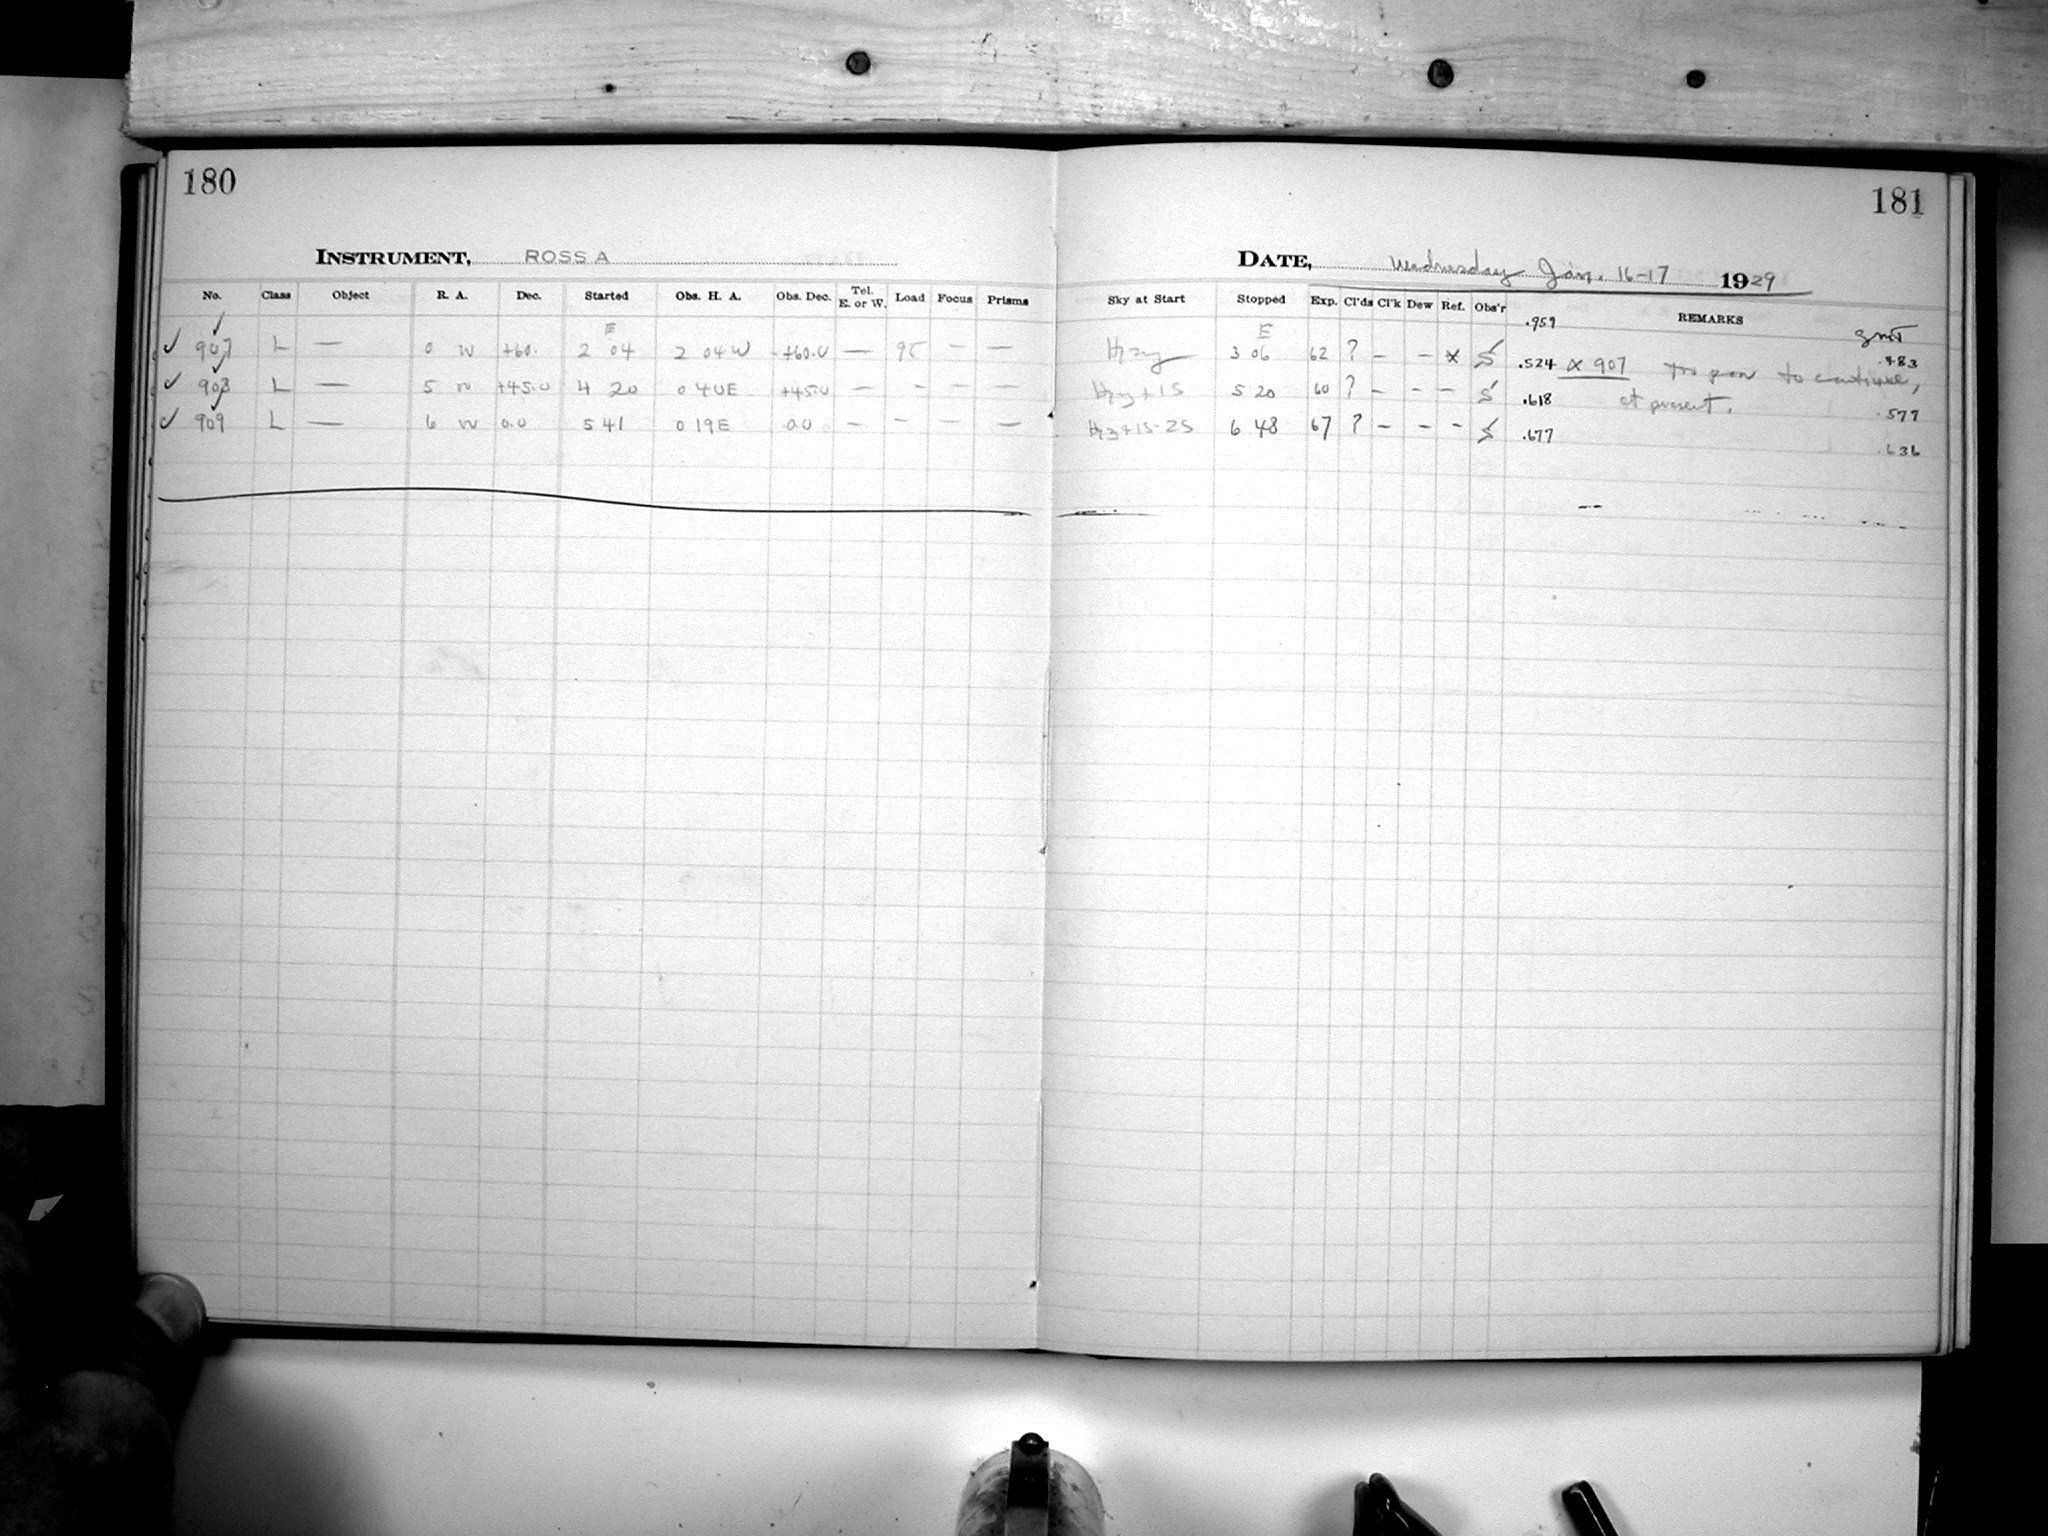 180
181
INSTRUMENT, ROSS A
DATE, Wednesday Jan. 16-17 1929
No. Class Object R. A. Dec. Started Obs. H. A. Obs. Dec. Tel. E. or W. Load Focus Prisms
Sky at Start Stopped Exp. Cl'ds Cl'k Dew Ref. Obs'r REMARKS
.959
E E
✓ 907 L — 0 W +60. 2 04 2 04W +60.0 — — —
Hazy 3 06 62 ? — — * S .524 * 907 Too poor to continue, .483
✓ 908 L — 5 W +45.0 4 20 0 40E +45.0 — — — —
Hzy+15 5 20 60 ? — — — S .618 at present. .577
✓ 909 L — 6 W 0.0 5 41 0 19E 0.0 — — — —
6 48 67 ? — — — S .677 .636